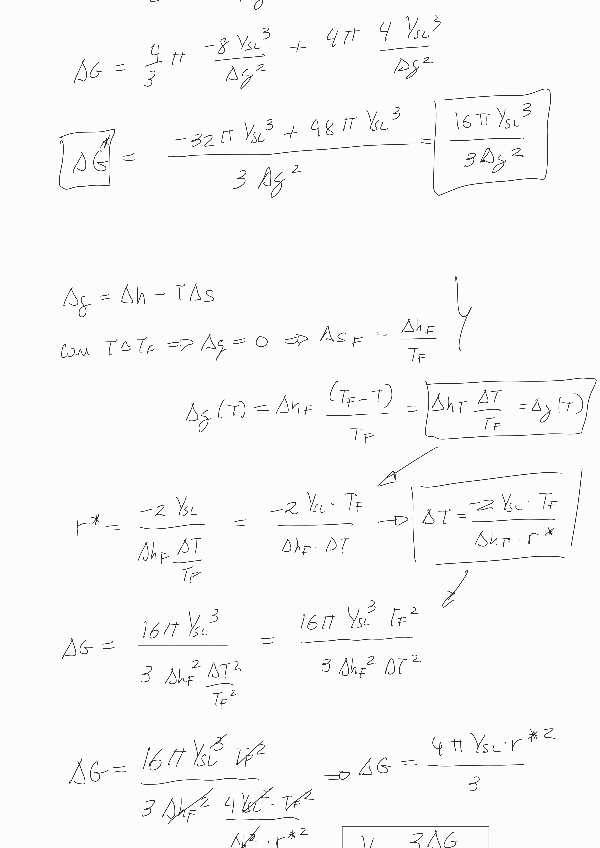 ΔG = 4/3 π -8 γSL³/Δg² + 4π 4 γSL³/Δg²
ΔG* = (-32 π γSL³ + 48 π γSL³)/(3 Δg²) = 16 π γSL³/(3 Δg²)
Δg = Δh - TΔs
con T Δ TF => Δg = 0 => ΔsF - ΔhF/TF
Δg (T) = ΔhF (TF - T)/TF = Δhf ΔT/TF = Δg (T)
r* = -2 γSL/(ΔhF ΔT/TF) = -2 γSL · TF/(ΔhF · ΔT) → ΔT = -2 γSL · TF/(ΔhF · r*)
ΔG = 16 π γSL³/(3 ΔhF² ΔT²/TF²) = 16 π γSL³ TF²/(3 ΔhF² ΔT²)
ΔG = 16 π γSL³ TF²/(3 ΔhF² 4 γSL² · TF²/(Δh² · r*²)) => ΔG = 4 π γSL · r*²/3
3 ΔG